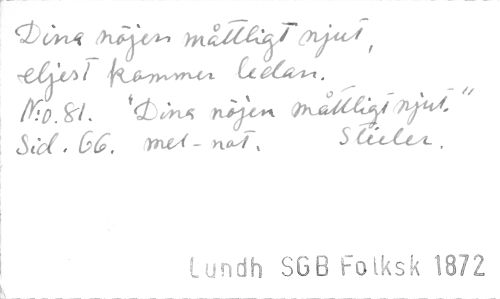 Dina nöjen måttligt njut,
eljest kommer ledan.
N:o. 81. "Dina nöjen måttligt njut."
Sid. 66. mel-not. Stieler.
Lundh SGB Folksk 1872